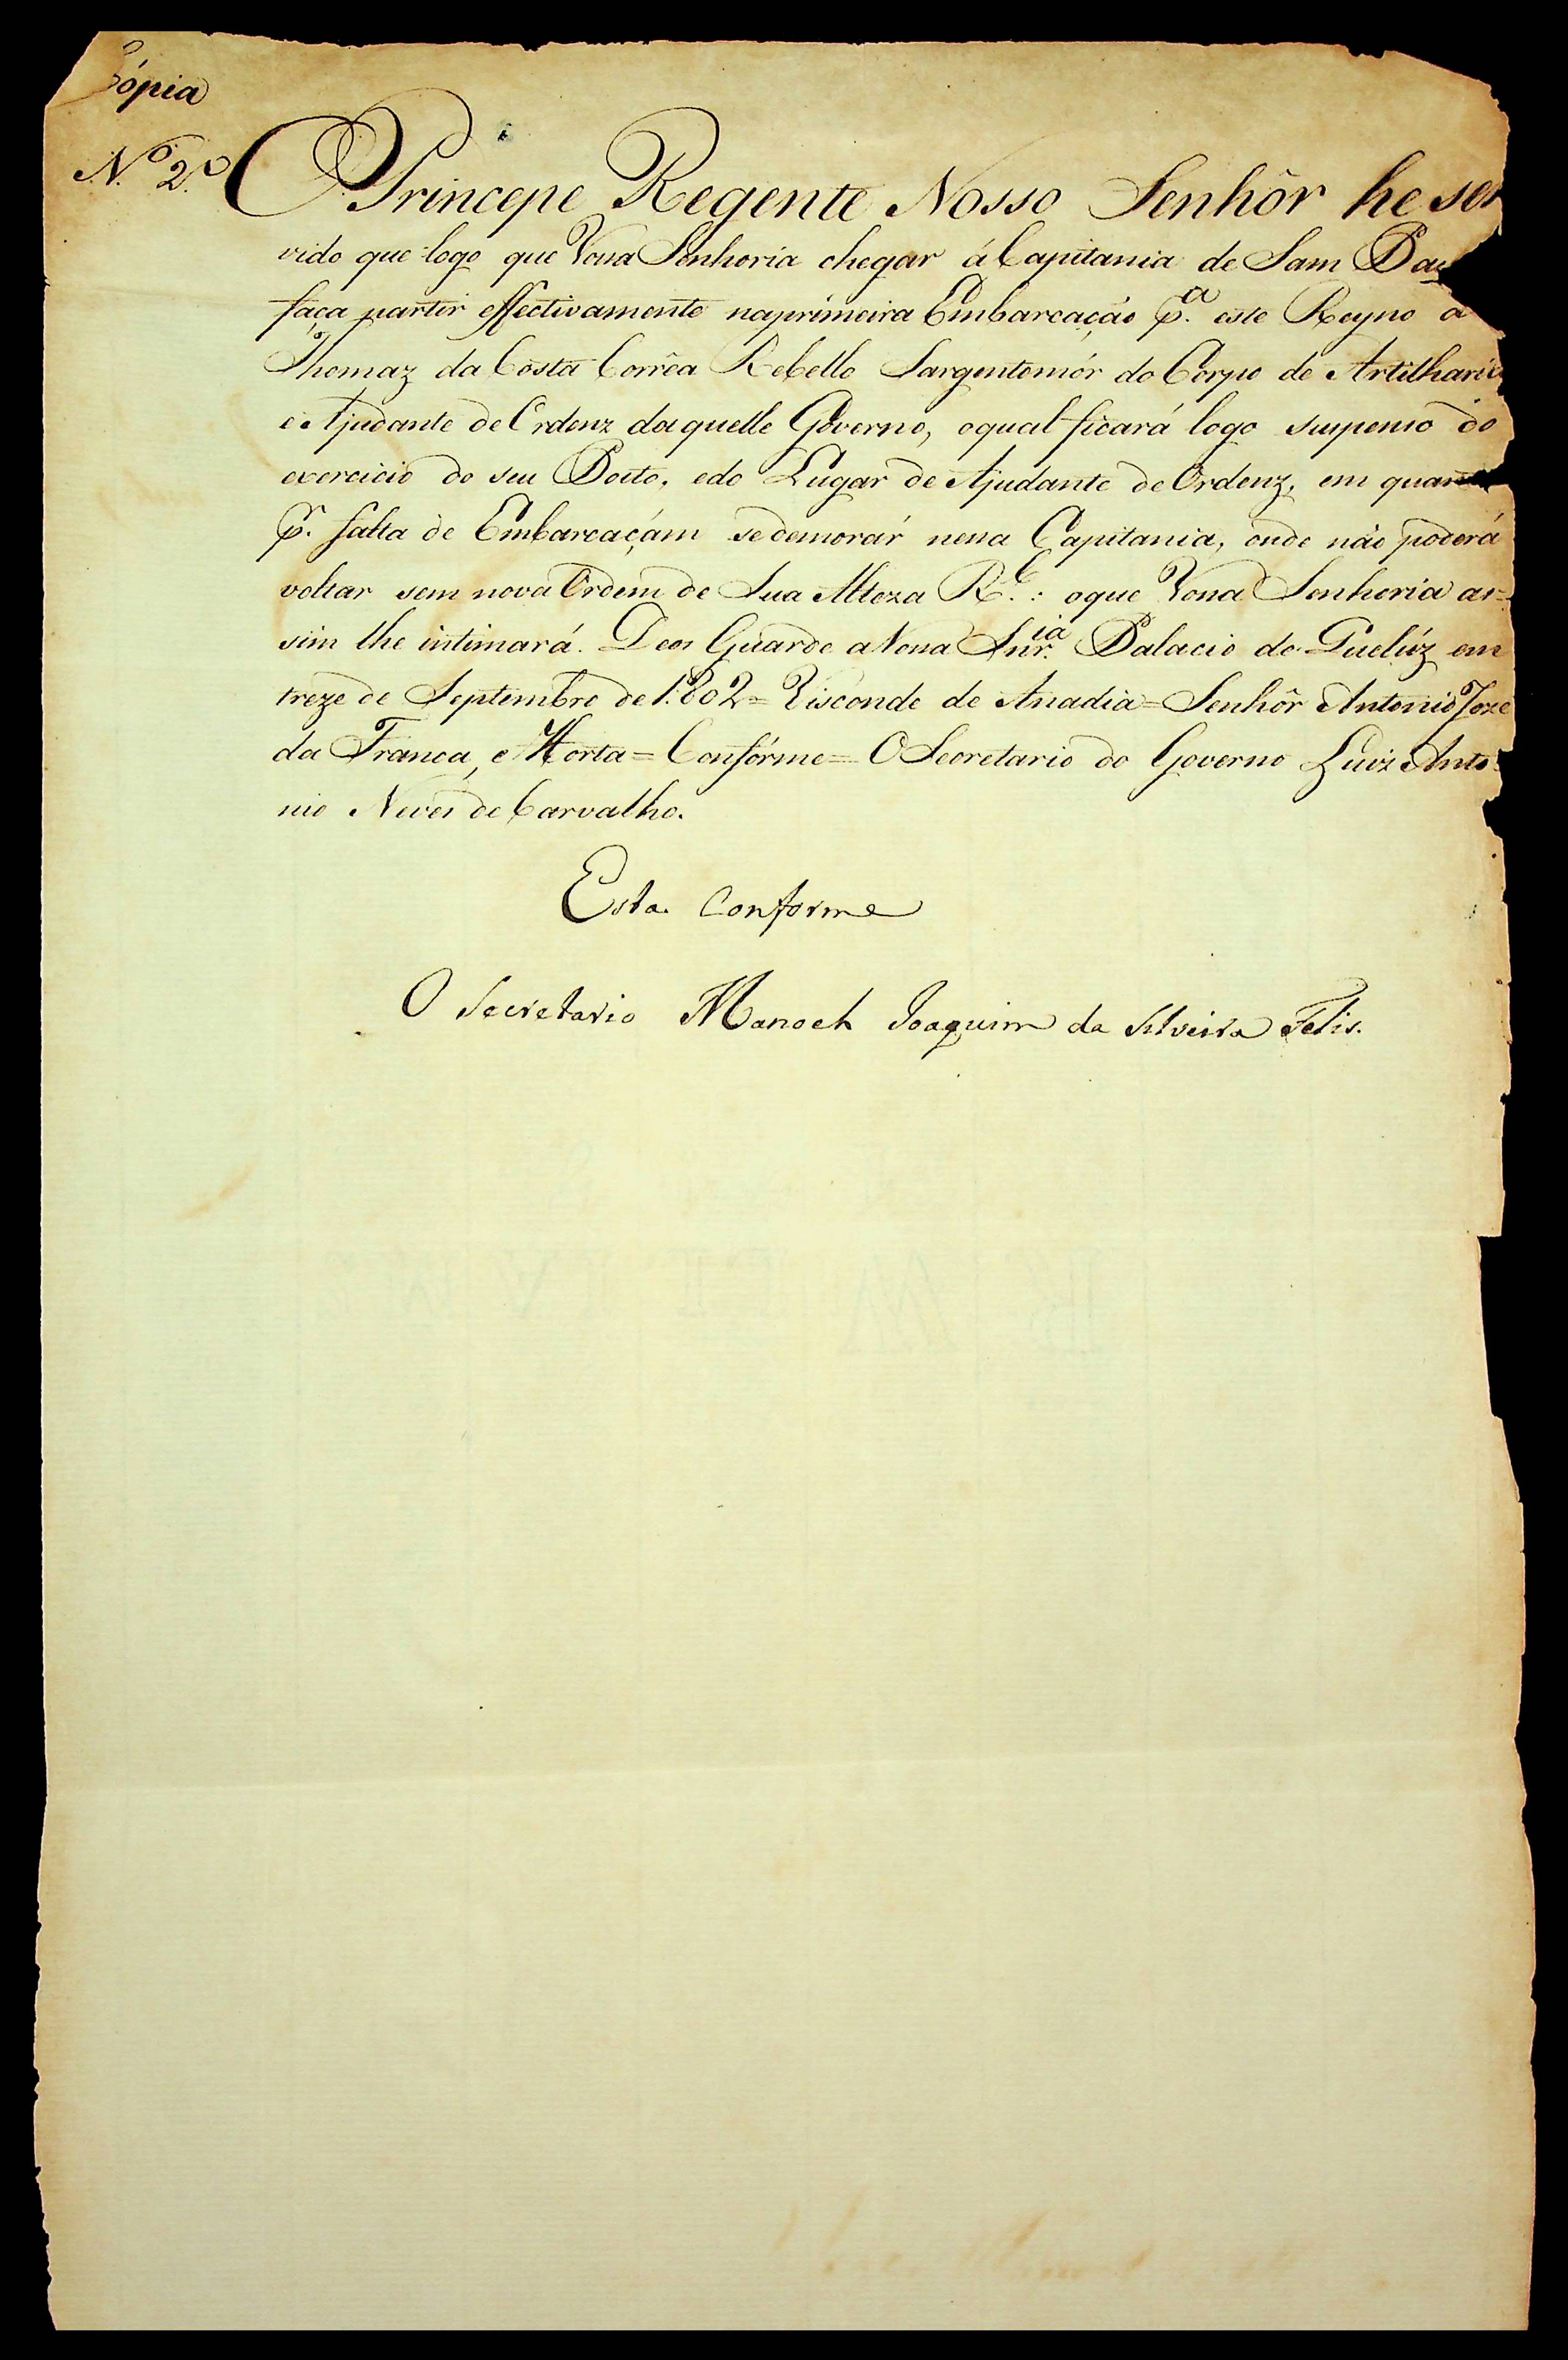 Cópia
N.º 2.º
O Principe Regente Nosso Senhôr he ser
vido que logo que Vossa Senhoria chegar á Capitania de Sam Pau
faça partir effectivamente naprimeira Embarcação p.ª este Reyno a
Thomaz da Costa Corrêa Rebello Sargentomór do Corpo de Artilharia
e Ajudante de Ordenz daquelle Governo, oqual ficará logo suspenso do
exercicio do seu Posto, edo Lugar de Ajudante de Ordenz, em quan
p.r falta de Embarcaçám sedemorár nessa Capitania, onde não poderá
voltar sem nova Ordem de Sua Alteza R.l: oque Vossa Senhoria as=
sim lhe intimará. Deos Guarde a Vossa Snr.ia Palacio de Quelúz em
treze de Septembro de 1802 = Visconde de Anadia = Senhôr Antonio Joze
da Franca, e Horta = Confórme = O Secretario do Governo Luiz Anto=
nio Neves de Carvalho.
Esta Conforme
O Secretario Manoel Joaquim da Silveira Felis.